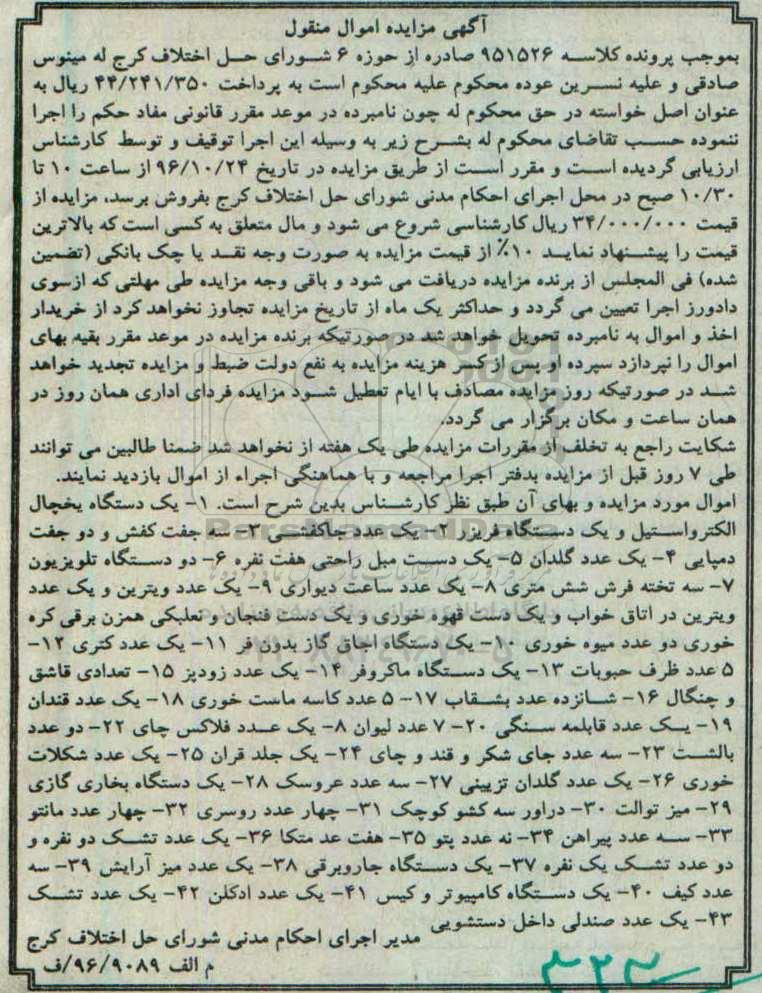 آگهی مزایده اموال منقول
بموجب پرونده کلاسه ۹۵۱۵۲۶ صادره از حوزه ۶ شورای حل اختلاف کرج له مینوس
صادقی و علیه نسرین عوده محکوم علیه محکوم است به پرداخت ۴۴/۲۴۱/۳۵۰ ریال به
عنوان اصل خواسته در حق محکوم له چون نامبرده در موعد مقرر قانونی مفاد حکم را اجرا
ننموده حسب تقاضای محکوم له بشرح زیر به وسیله این اجرا توقیف و توسط کارشناس
ارزیابی گردیده است و مقرر است از طریق مزایده در تاریخ ۹۶/۱۰/۲۴ از ساعت ۱۰ تا
۱۰/۳۰ صبح در محل اجرای احکام مدنی شورای حل اختلاف کرج بفروش برسد، مزایده از
قیمت ۳۴/۰۰۰/۰۰۰ ریال کارشناسی شروع می شود و مال متعلق به کسی است که بالاترین
قیمت را پیشنهاد نماید ۱۰٪ از قیمت مزایده به صورت وجه نقد یا چک بانکی (تضمین
شده) فی المجلس از برنده مزایده دریافت می شود و باقی وجه مزایده طی مهلتی که ازسوی
دادورز اجرا تعیین می گردد و حداکثر یک ماه از تاریخ مزایده تجاوز نخواهد کرد از خریدار
اخذ و اموال به نامبرده تحویل خواهد شد در صورتیکه برنده مزایده در موعد مقرر بقیه بهای
اموال را نپردازد سپرده او پس از کسر هزینه مزایده به نفع دولت ضبط و مزایده تجدید خواهد
شد در صورتیکه روز مزایده مصادف با ایام تعطیل شود مزایده فردای اداری همان روز در
همان ساعت و مکان برگزار می گردد.
شکایت راجع به تخلف از مقررات مزایده طی یک هفته از نخواهد شد ضمنا طالبین می توانند
طی ۷ روز قبل از مزایده بدفتر اجرا مراجعه و با هماهنگی اجراء از اموال بازدید نمایند.
اموال مورد مزایده و بهای آن طبق نظر کارشناس بدین شرح است. ۱- یک دستگاه یخچال
الکترواستیل و یک دستگاه فریزر ۲- یک عدد جاکفشی ۳- سه جفت کفش و دو جفت
دمپایی ۴- یک عدد گلدان ۵- یک دست مبل راحتی هفت نفره ۶- دو دستگاه تلویزیون
۷- سه تخته فرش شش متری ۸- یک عدد ساعت دیواری ۹- یک عدد ویترین و یک عدد
ویترین در اتاق خواب و یک دست قهوه خوری و یک دست فنجان و نعلبکی همزن برقی کره
خوری دو عدد میوه خوری ۱۰- یک دستگاه اجاق گاز بدون فر ۱۱- یک عدد کتری ۱۲-
۵ عدد ظرف حبوبات ۱۳- یک دستگاه ماکروفر ۱۴- یک عدد زودپز ۱۵- تعدادی قاشق
و چنگال ۱۶- شانزده عدد بشقاب ۱۷- ۵ عدد کاسه ماست خوری ۱۸- یک عدد قندان
۱۹- یک عدد قابلمه سنگی ۲۰- ۷ عدد لیوان ۸- یک عدد فلاکس چای ۲۲- دو عدد
بالشت ۲۳- سه عدد جای شکر و قند و چای ۲۴- یک جلد قران ۲۵- یک عدد شکلات
خوری ۲۶- یک عدد گلدان تزیینی ۲۷- سه عدد عروسک ۲۸- یک دستگاه بخاری گازی
۲۹- میز توالت ۳۰- دراور سه کشو کوچک ۳۱- چهار عدد روسری ۳۲- چهار عدد مانتو
۳۳- سه عدد پیراهن ۳۴- نه عدد پتو ۳۵- هفت عد متکا ۳۶- یک عدد تشک دو نفره و
دو عدد تشک یک نفره ۳۷- یک دستگاه جاروبرقی ۳۸- یک عدد میز آرایش ۳۹- سه
عدد کیف ۴۰- یک دستگاه کامپیوتر و کیس ۴۱- یک عدد ادکلن ۴۲- یک عدد تشک
۴۳- یک عدد صندلی داخل دستشویی
مدیر اجرای احکام مدنی شورای حل اختلاف کرج
م الف ۹۶/۹۰۸۹/ف